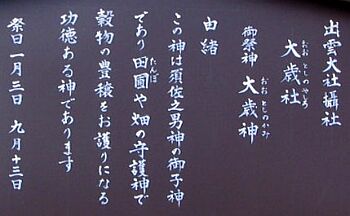 出雲大社攝社
大歳社
おおとしのやしろ
御祭神 大歳神
おおとしのかみ
由緒
この神は須佐之男神の御子神
であり田圃や畑の守護神で
たんぼ
穀物の豊穣をお護りになる
功徳ある神であります
祭日一月三日 九月十三日